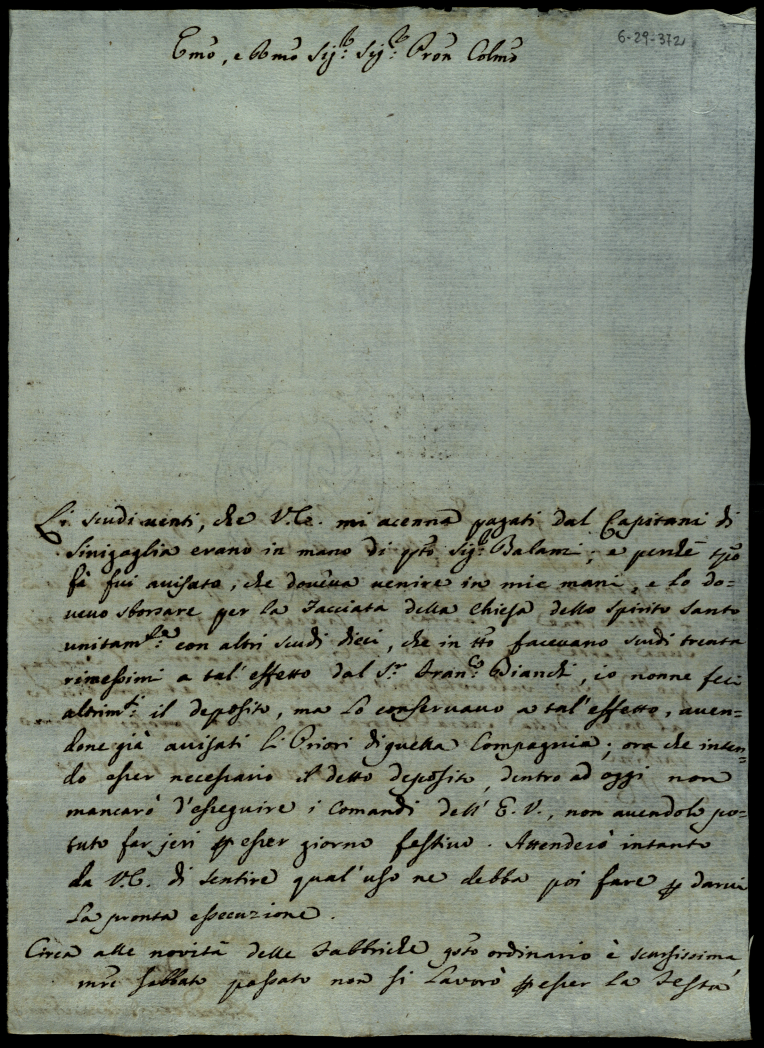 6-29-372
Emõ, e Rmõ Sig.r Sig.r Pron Colmõ
Li scudi venti, che V.E. mi acenna pagati dal Capitani di
Sinigaglia erano in mano di qsto Sig.r Balani; e perchè tpo
fà fui avisato, che doveva venire in mie mani, e lo do=
vevo sborsare per la Facciata della Chiesa dello Spirito Santo
unitam.te con altri scudi dieci, che in tto facevano scudi trenta
rimessimi a tal'effetto dal S.r Fran.co Bianchi, io nonne feci
altrim.ti il deposito, ma lo conservavo a tal'effetto, aven=
done già avisati li Priori di quella Compagnia; ora che inten=
do esser necessario il detto deposito, dentro ad oggi non
mancarò d'esseguire i Comandi dell'E.V., non avendolo po=
tuto far jeri p esser giorno festivo. Attenderò intanto
da V.E. di sentire qual'uso ne debba poi fare p darvi
la pronta essecuzione.
Circa alle novità delle Fabbriche qsto ordinario è scarsissima
mre sabbato passato non si lavorò p esser la Festa